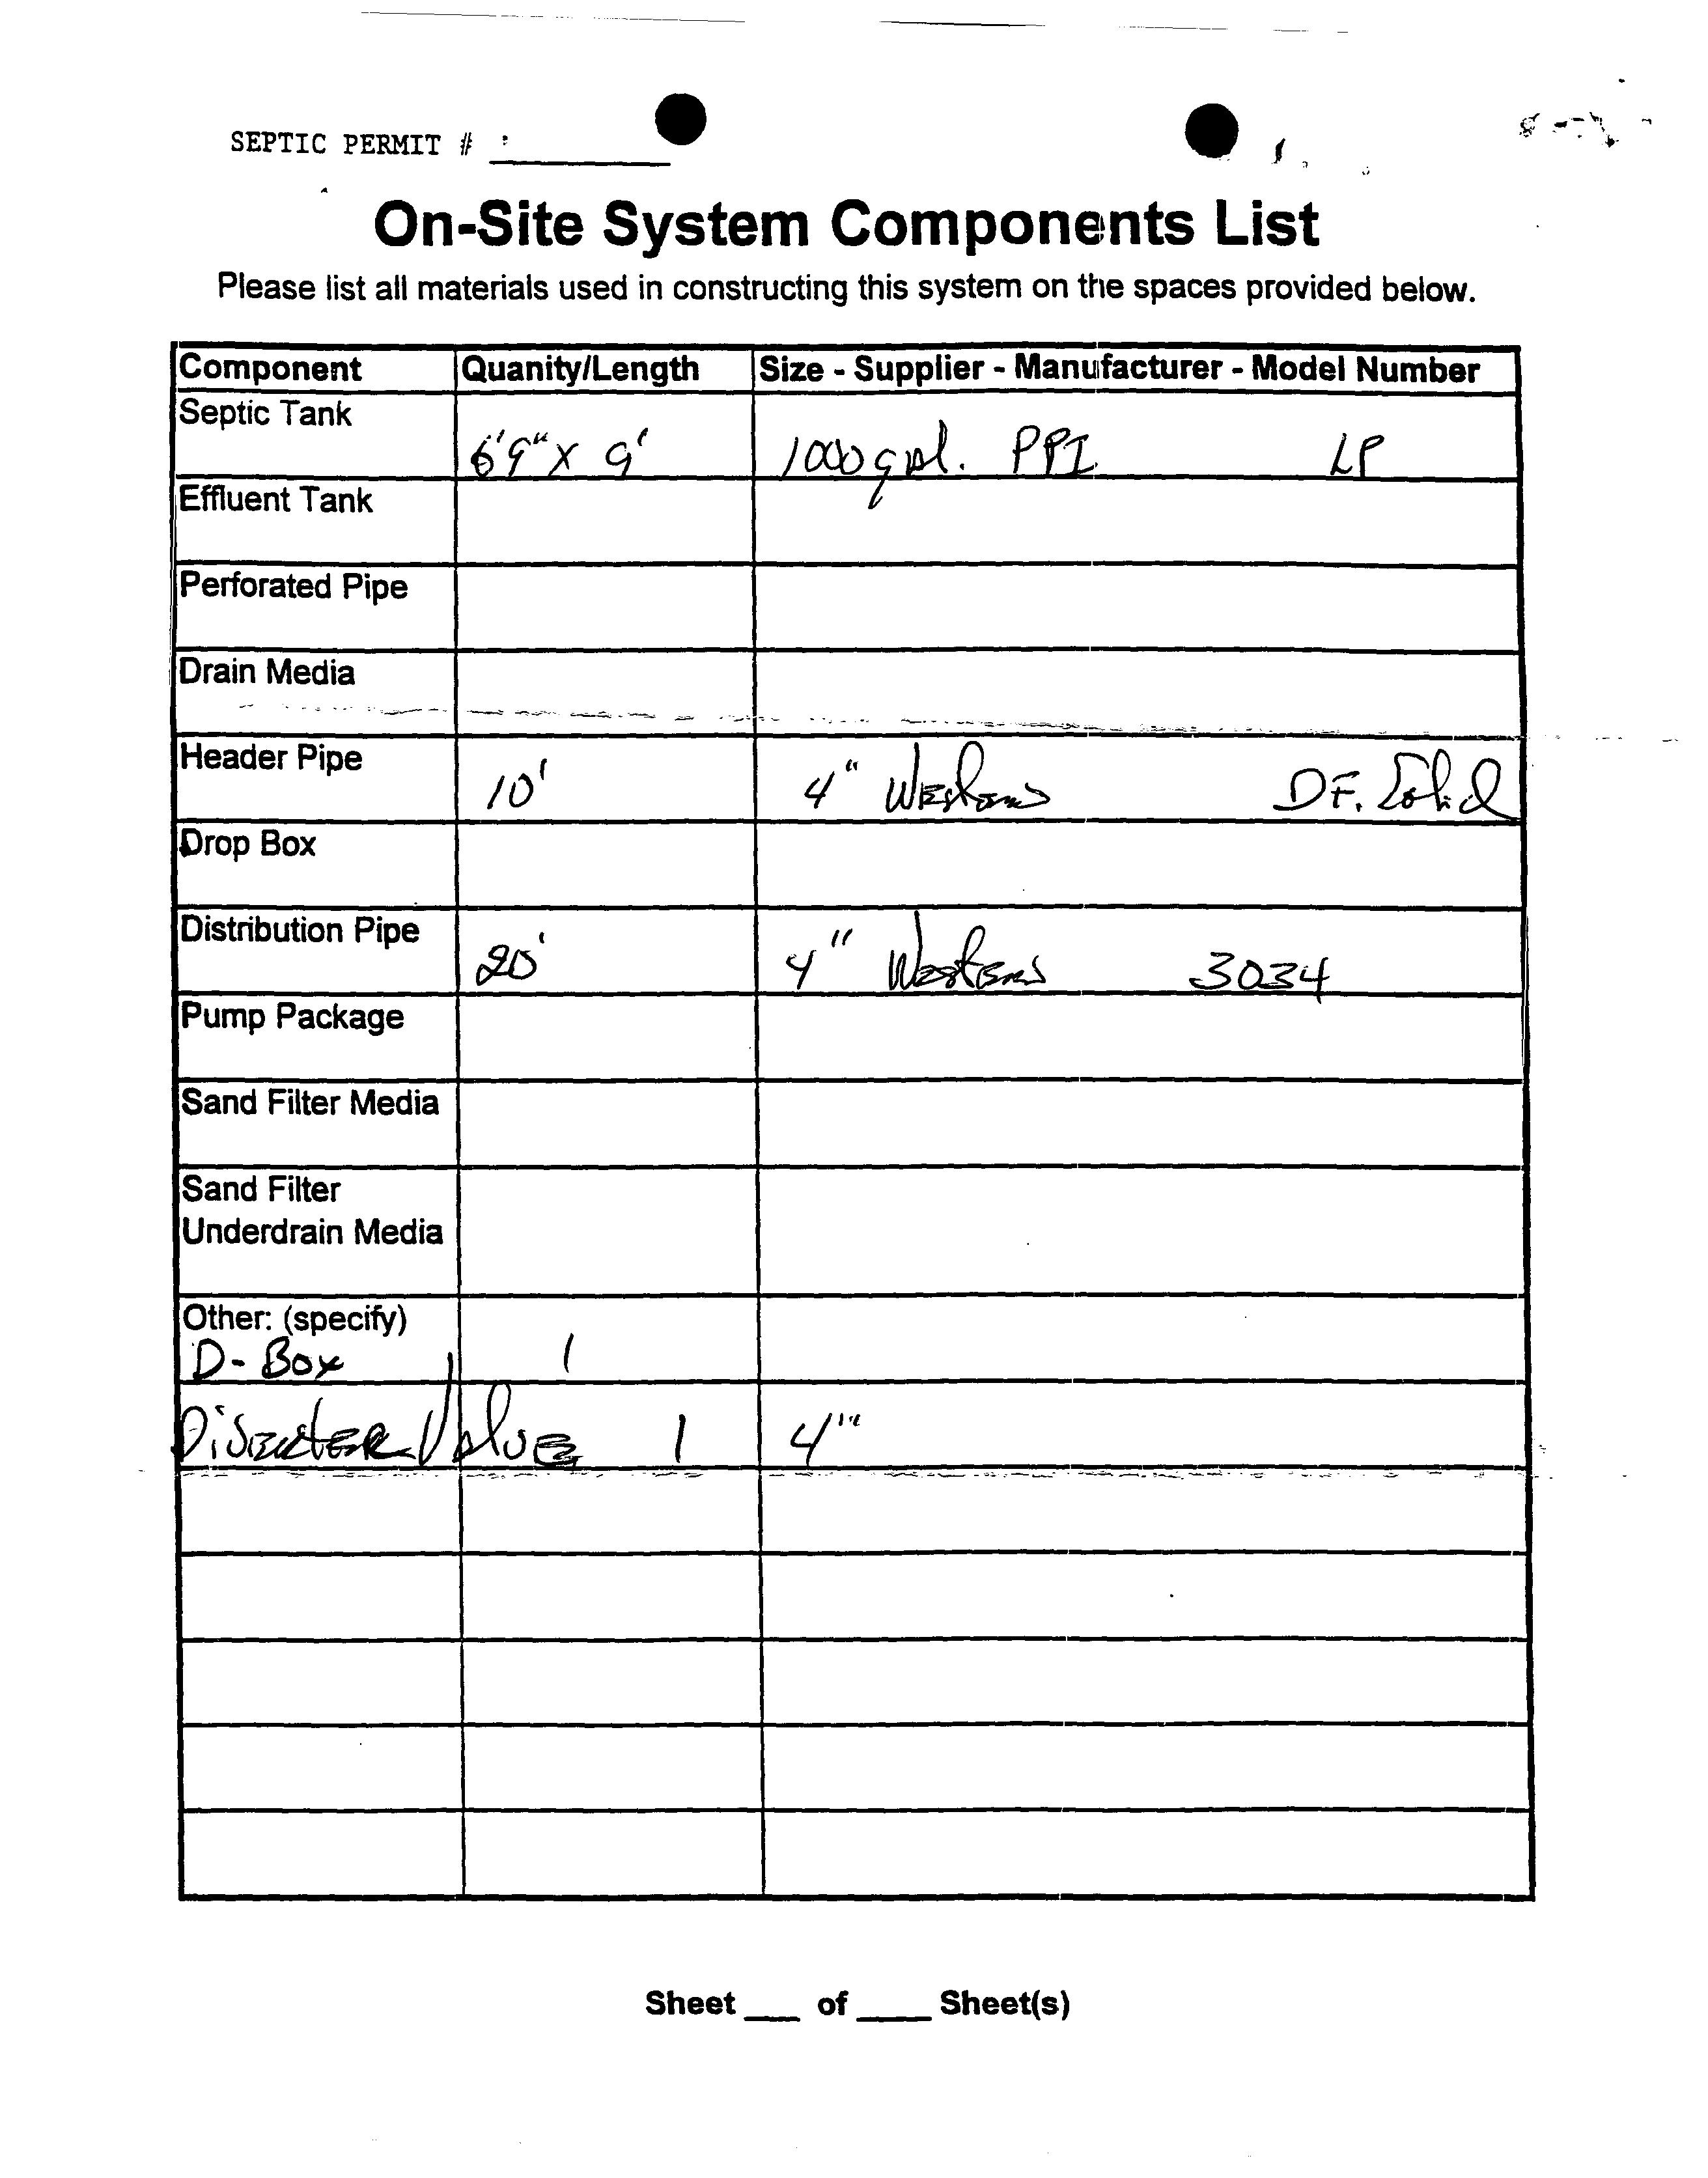 SEPTIC PERMIT #
On-Site System Components List
Please list all materials used in constructing this system on the spaces provided below.
Component Quanity/Length Size - Supplier - Manufacturer - Model Number
Septic Tank
6'9" x 9' 1000 gal. PPI LP
Effluent Tank
Perforated Pipe
Drain Media
Header Pipe
10' 4" Western DF. Solid
Drop Box
Distribution Pipe
20' 4" Western 3034
Pump Package
Sand Filter Media
Sand Filter
Underdrain Media
Other: (specify)
D-Box 1
Valve 1 4"
Sheet ___ of ___ Sheet(s)